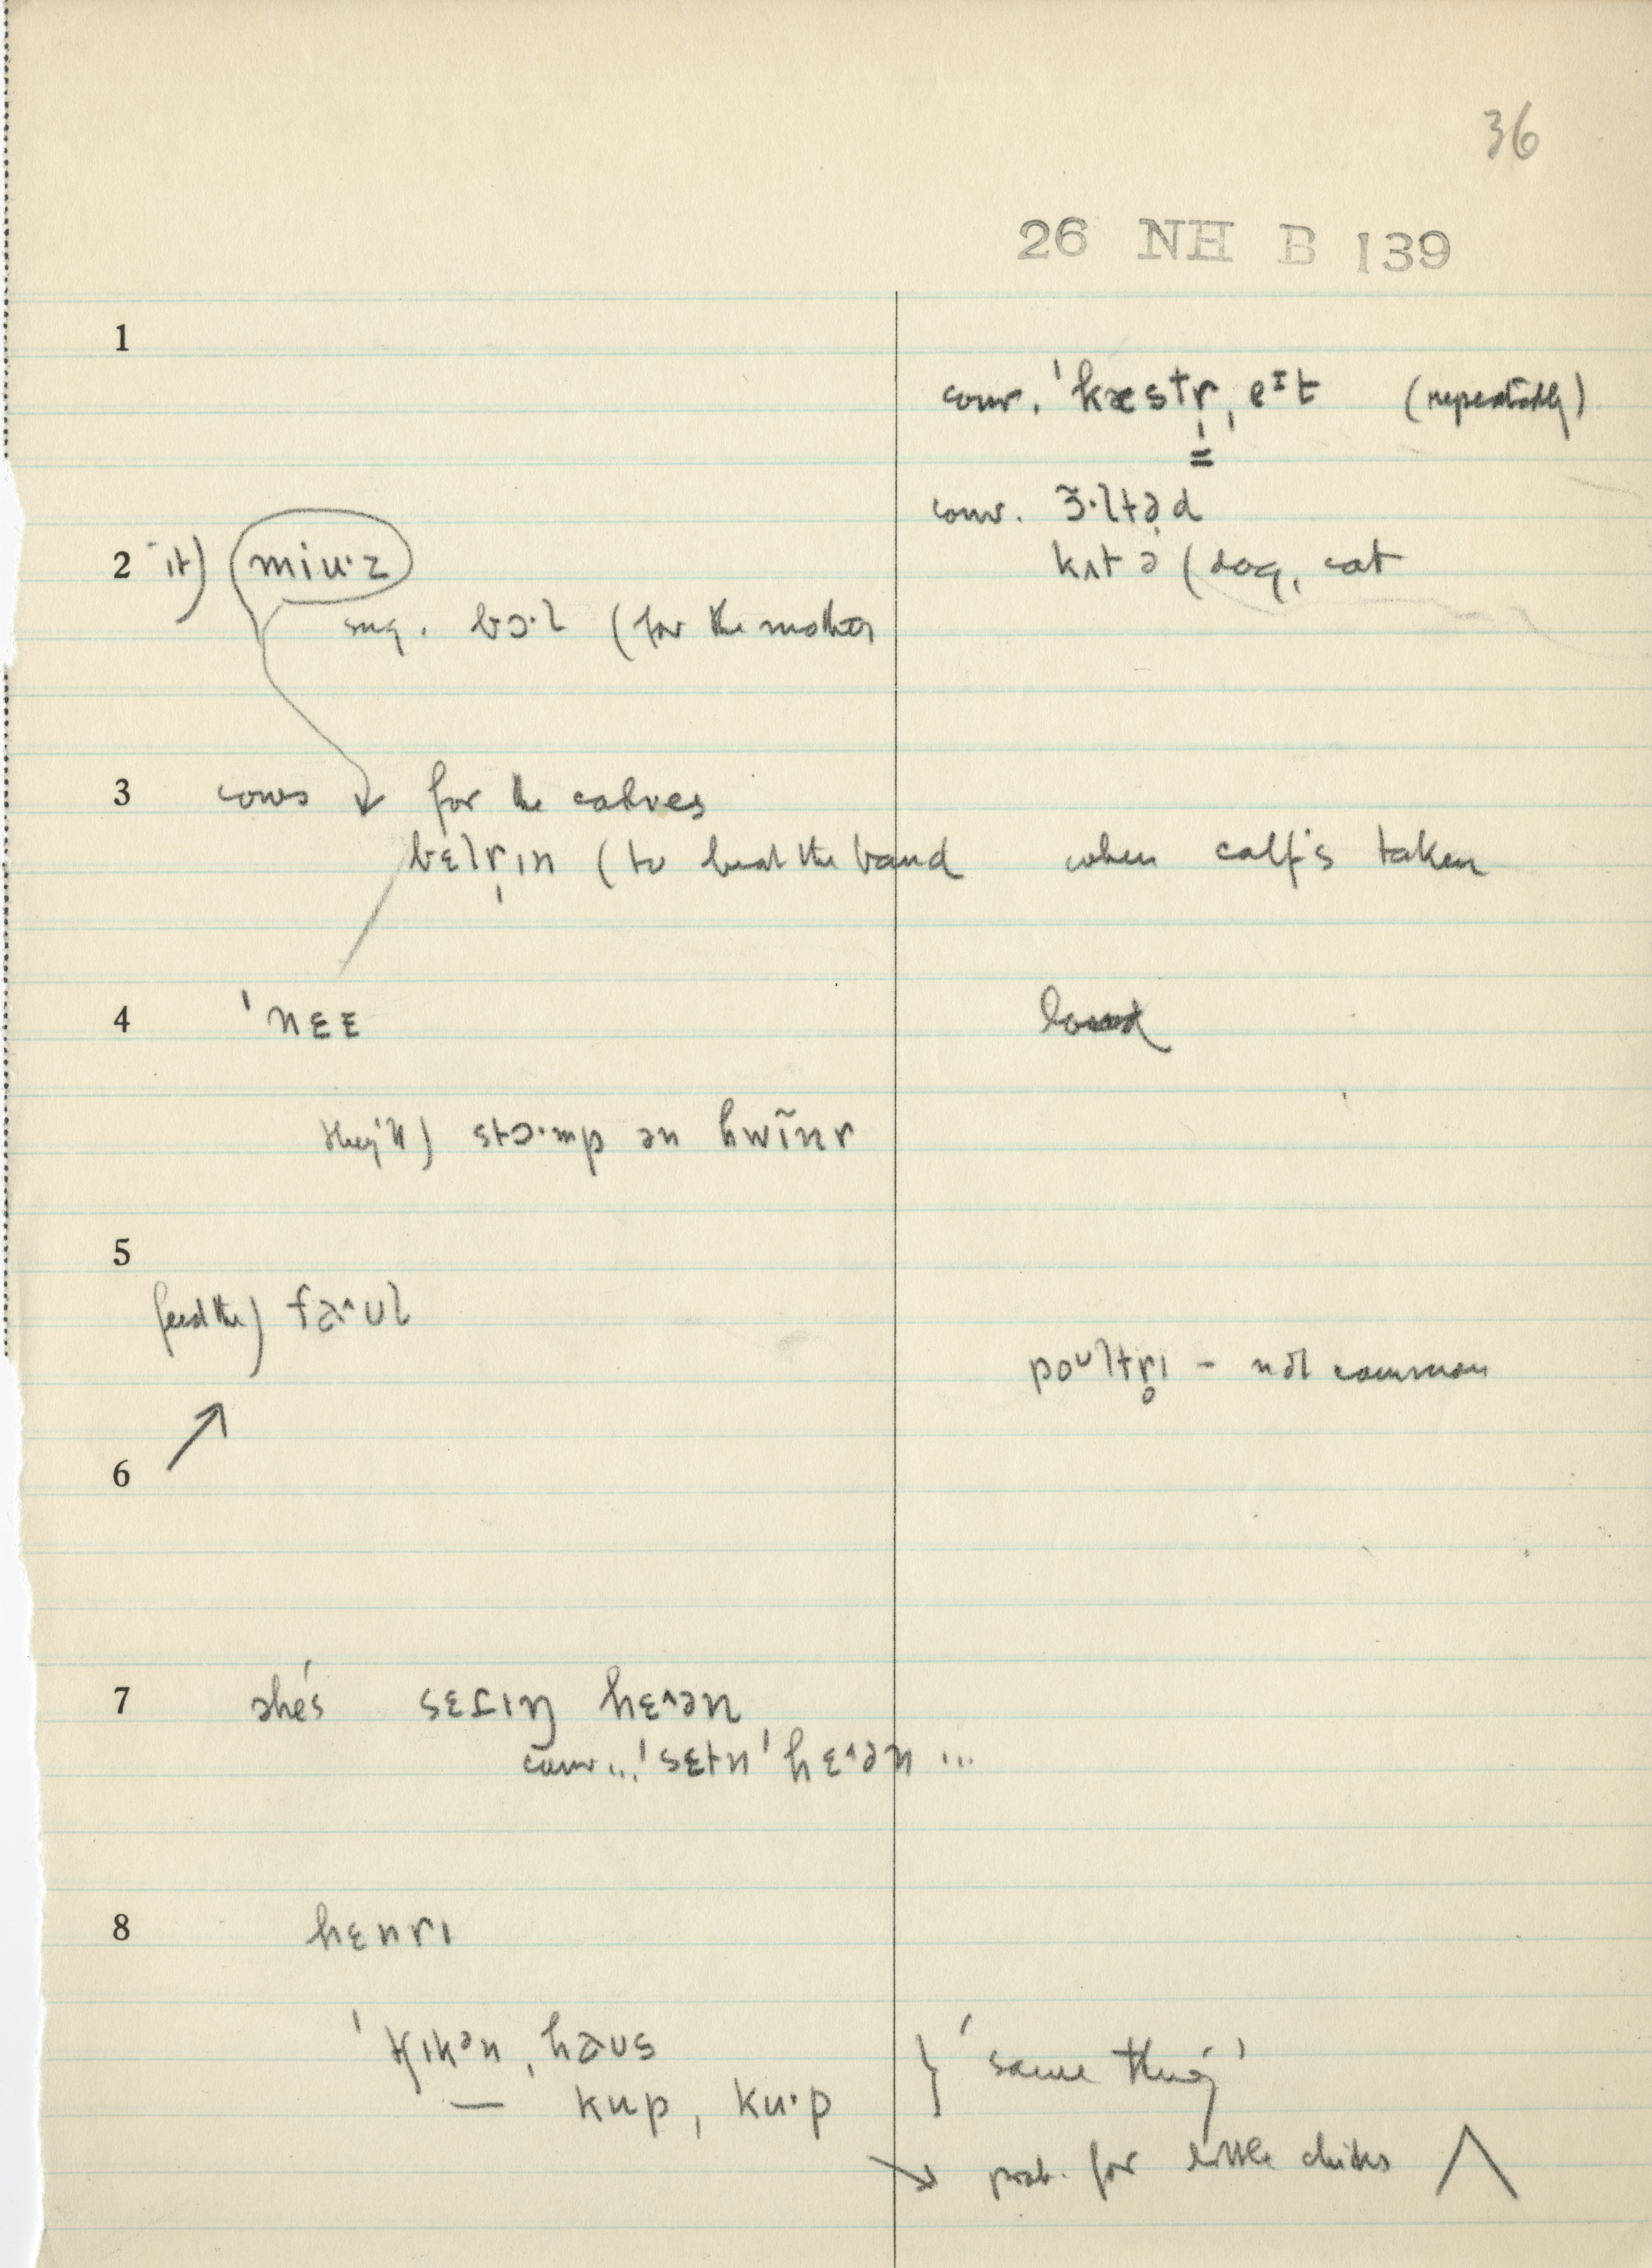 36
26 NH B 139
1
conv. ˈkæstr̩ˌeᴵt (repeatedly)
conv. ɜ̃·ltəd
2 it) miu·z
kʌtə (dog, cat
sug. bɔ·l (for the mother
3 cows ↓ for the calves
bɛlr̩ɪn (to beat the band when calf's taken
4 ˈnɛɛ
they'll) stɔ·mp ən hwĩnr
5
feed the) fa^ʊl
poᵁltr̥ɪ – not common
6
7 she's sɛɾɪŋ hɛ^ən
conv... ˈsɛtn ˈhɛ^ən ...
8 hɛnrɪ
ˈtʃɪkənˌhaʊs } 'same thing'
— kup, ku·p
→ prob. for little chicks ∧